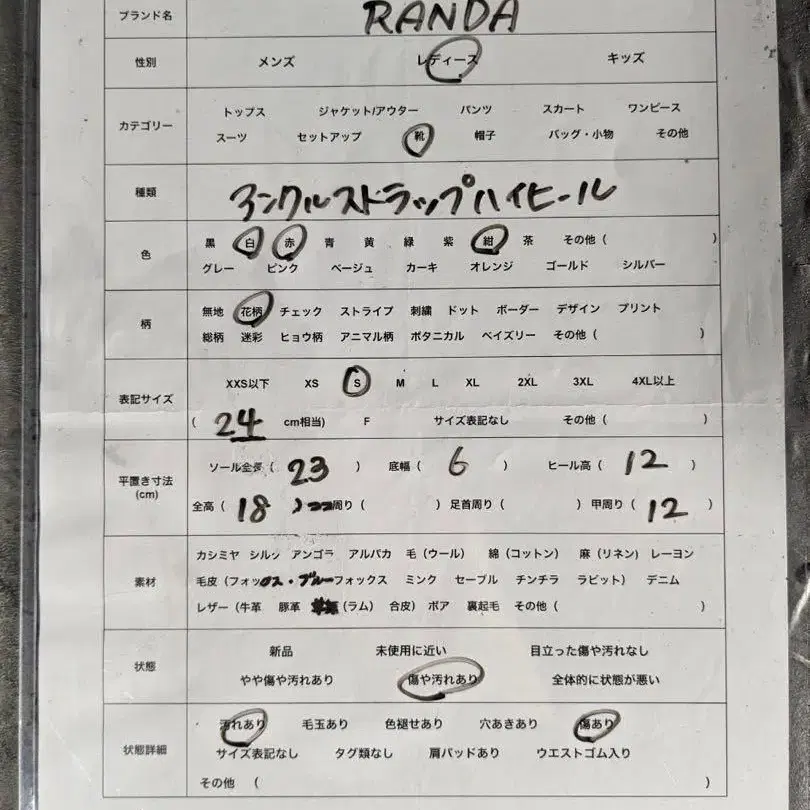 ブランド名 RANDA
性別 メンズ レディース キッズ
カテゴリー
トップス ジャケット/アウター パンツ スカート ワンピース
スーツ セットアップ 靴 帽子 バッグ・小物 その他
種類 アンクルストラップハイヒール
色
黒 白 赤 青 黄 緑 紫 紺 茶 その他 ( )
グレー ピンク ベージュ カーキ オレンジ ゴールド シルバー
柄
無地 花柄 チェック ストライプ 刺繍 ドット ボーダー デザイン プリント
総柄 迷彩 ヒョウ柄 アニマル柄 ボタニカル ペイズリー その他 ( )
表記サイズ
XXS以下 XS S M L XL 2XL 3XL 4XL以上
( 24 cm相当) F サイズ表記なし その他 ( )
平置き寸法
(cm)
ソール全長 ( 23 ) 底幅 ( 6 ) ヒール高 ( 12 )
全高 ( 18 ) 周り ( ) 足首周り ( ) 甲周り ( 12 )
素材
カシミヤ シルク アンゴラ アルパカ 毛 (ウール) 綿 (コットン) 麻 (リネン) レーヨン
毛皮 (フォックス・ブルーフォックス ミンク セーブル チンチラ ラビット) デニム
レザー (牛革 豚革 (ラム) 合皮) ボア 裏起毛 その他 ( )
状態
新品 未使用に近い 目立った傷や汚れなし
やや傷や汚れあり 傷や汚れあり 全体的に状態が悪い
状態詳細
汚れあり 毛玉あり 色褪せあり 穴あきあり 傷あり
サイズ表記なし タグ類なし 肩パッドあり ウエストゴム入り
その他 ( )